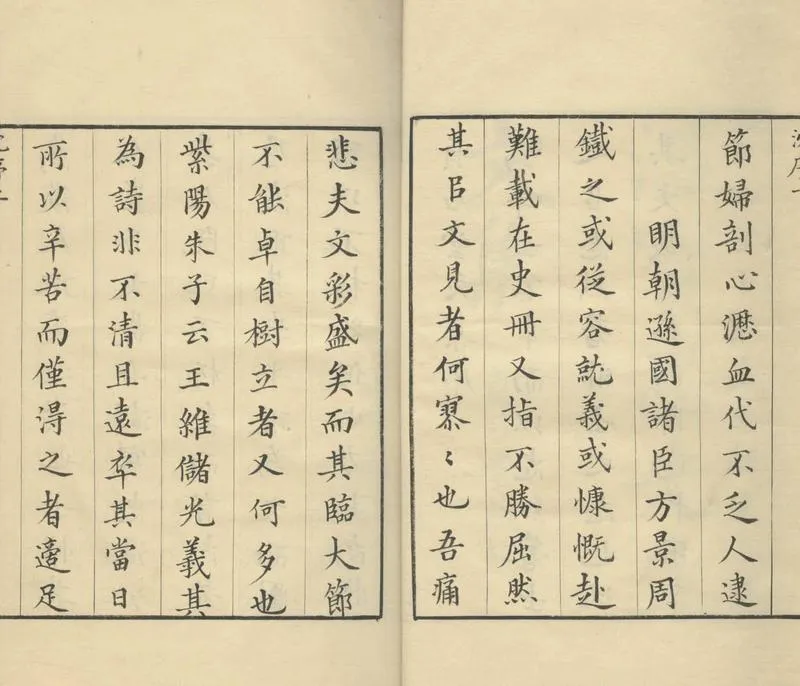 節婦剖心瀝血代不乏人逮
明朝遜國諸臣方景周
鐵之或從容就義或慷慨赴
難載在史冊又指不勝屈然
其㠯文見者何寥〻也吾痛
悲夫文彩盛矣而其臨大節
不能卓自樹立者又何多也
紫陽朱子云王維儲光羲其
為詩非不清且遠卒其當日
所以辛苦而僅得之者適足